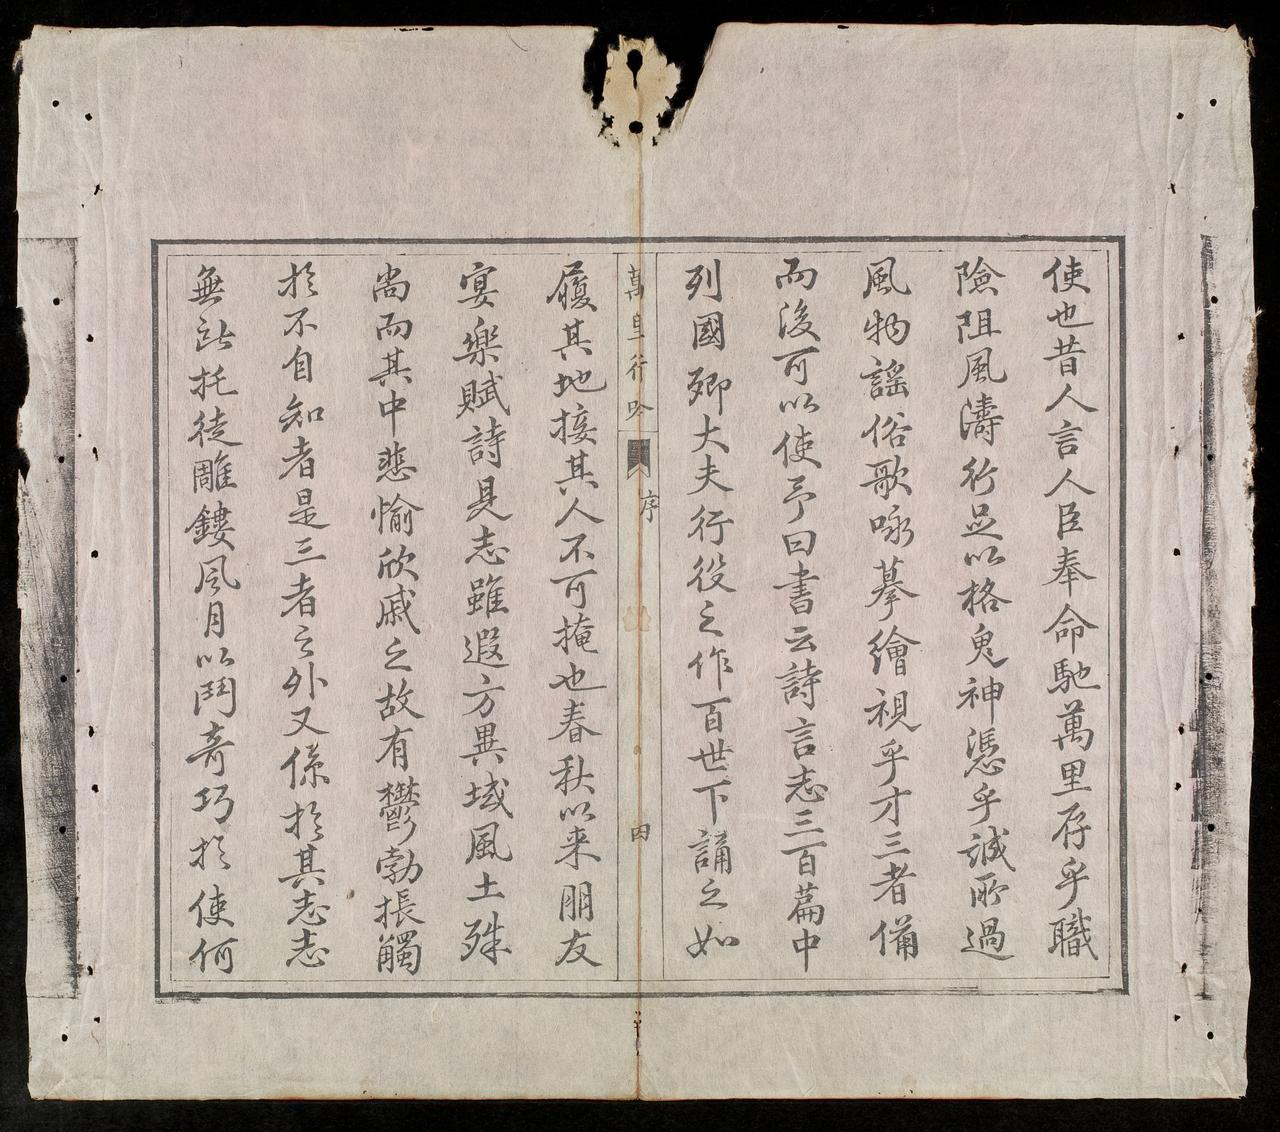 使也昔人言人臣奉命馳萬里存乎職
險阻風濤行足以格鬼神憑乎誠所過
風物謠俗歌咏摹繪視乎才三者備
而後可以使予曰書云詩言志三百篇中
列國卿大夫行役之作百世下誦之如
萬里行吟
序
四
履其地接其人不可掩也春秋以来朋友
宴樂賦詩見志雖遐方異域風土殊
尚而其中悲愉欣戚之故有鬱勃掁觸
於不自知者是三者之外又係於其志志
無所托徒雕鏤風月以鬥奇巧於使何